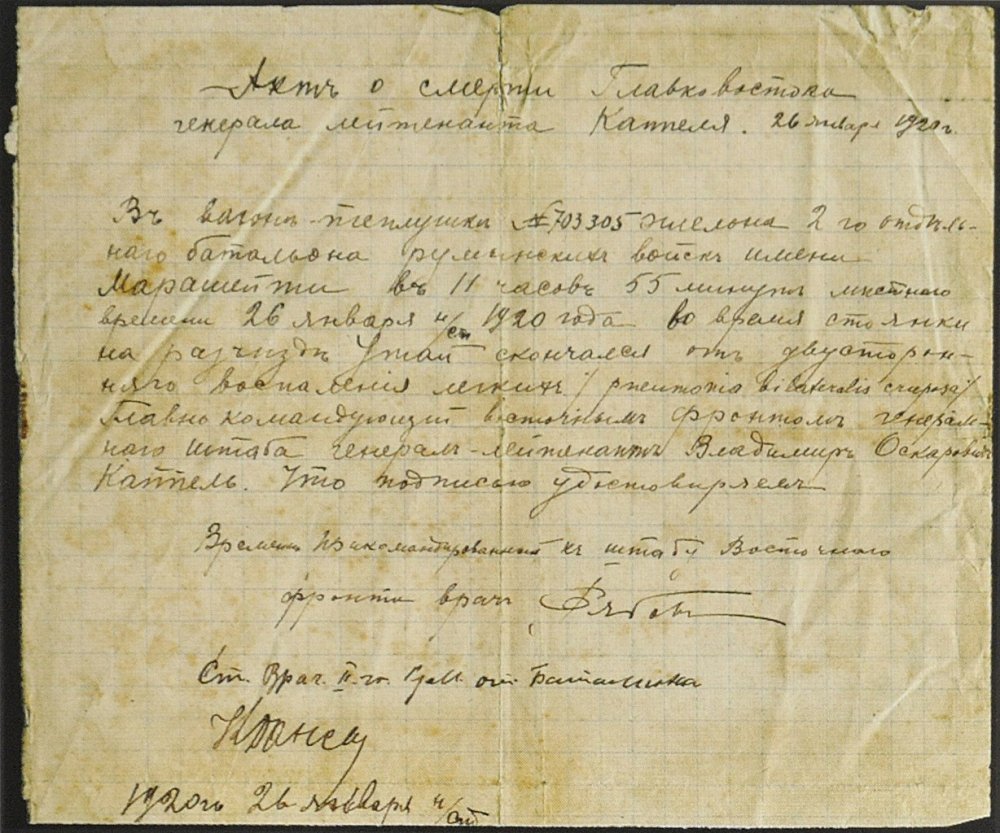 Актъ о смерти Главковостока
генерала лейтенанта Каппеля. 26 января 1920 г.
Въ вагонѣ-теплушкѣ № 703305 эшелона 2 го отдѣль-
наго батальона румынскихъ войскъ имени
Марашейти въ 11 часовъ 55 минутъ мѣстного
времени 26 января н/ст 1920 года во время стоянки
на разъѣздѣ Утай скончался отъ двусторон-
няго воспаленія легкихъ / pneumonia bilateralis cruposa /
Главнокомандующій восточнымъ фронтомъ генераль-
ного штаба генералъ-лейтенантъ Владимиръ Оскаровичъ
Каппель. Что подписью удостовѣряемъ
Времено прикомандированный къ штабу Восточного
фронта врачъ
Ст. Врач II-го Рум. от. Баталиона
1920 г. 26 января н/ст